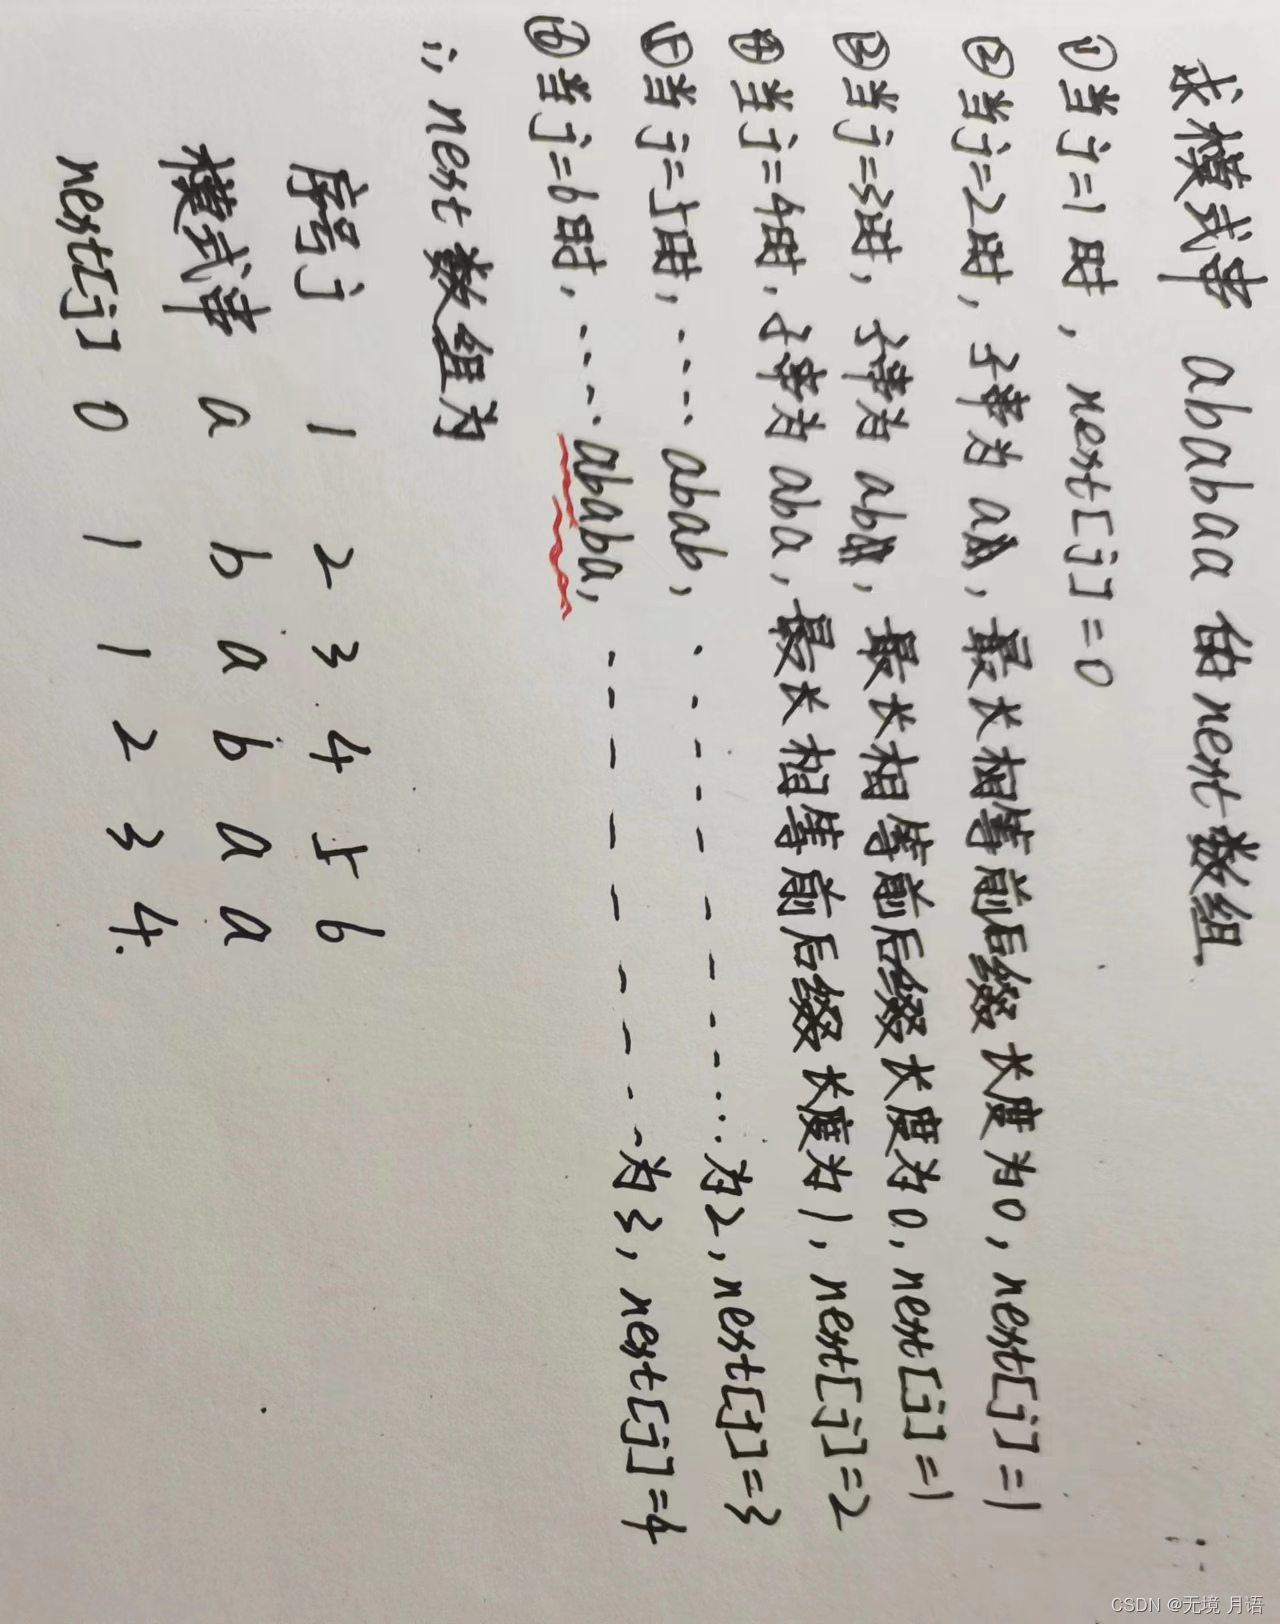 求模式串 ababaa 的next数组
①当j=1时，next[j]=0
②当j=2时，子串为a，最长相等前后缀长度为0，next[j]=1
③当j=3时，子串为ab，最长相等前后缀长度为0，next[j]=1
④当j=4时，子串为aba，最长相等前后缀长度为1，next[j]=2
⑤当j=5时，····abab，·········为2，next[j]=3
⑥当j=6时，····ababa，---------为3，next[j]=4
∴next数组为
序号j 1 2 3 4 5 6
模式串 a b a b a a
next[j] 0 1 1 2 3 4
CSDN @无境 月语